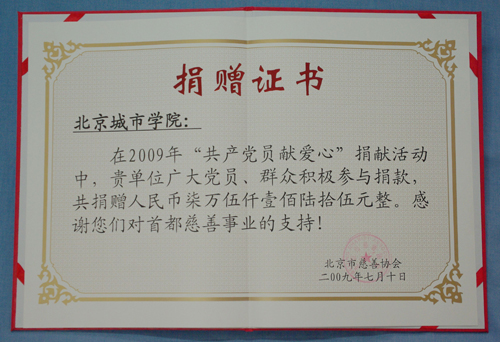 捐赠证书
北京城市学院：
在2009年“共产党员献爱心”捐献活动
中，贵单位广大党员、群众积极参与捐款，
共捐赠人民币柒万伍仟壹佰陆拾伍元整。感
谢您们对首都慈善事业的支持！
北京市慈善协会
二00九年七月十日